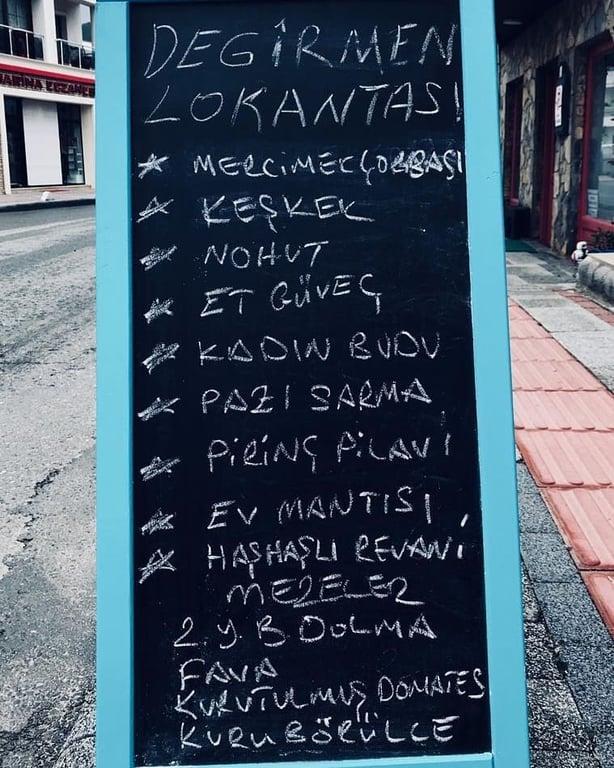 DEGİRMEN
LOKANTASI
MERCİMEC ÇORBAŞI
KEŞKEK
NOHUT
ET GÜVEÇ
KADIN BUDU
PAZI SARMA
PİRİNÇ PİLAVI
EV MANTISI
HAŞHAŞLI REVANİ
MEZELER
2 Y. B DOLMA
FAVA
KURUTULMUŞ DOMATES
KURU BÖRÜLCE